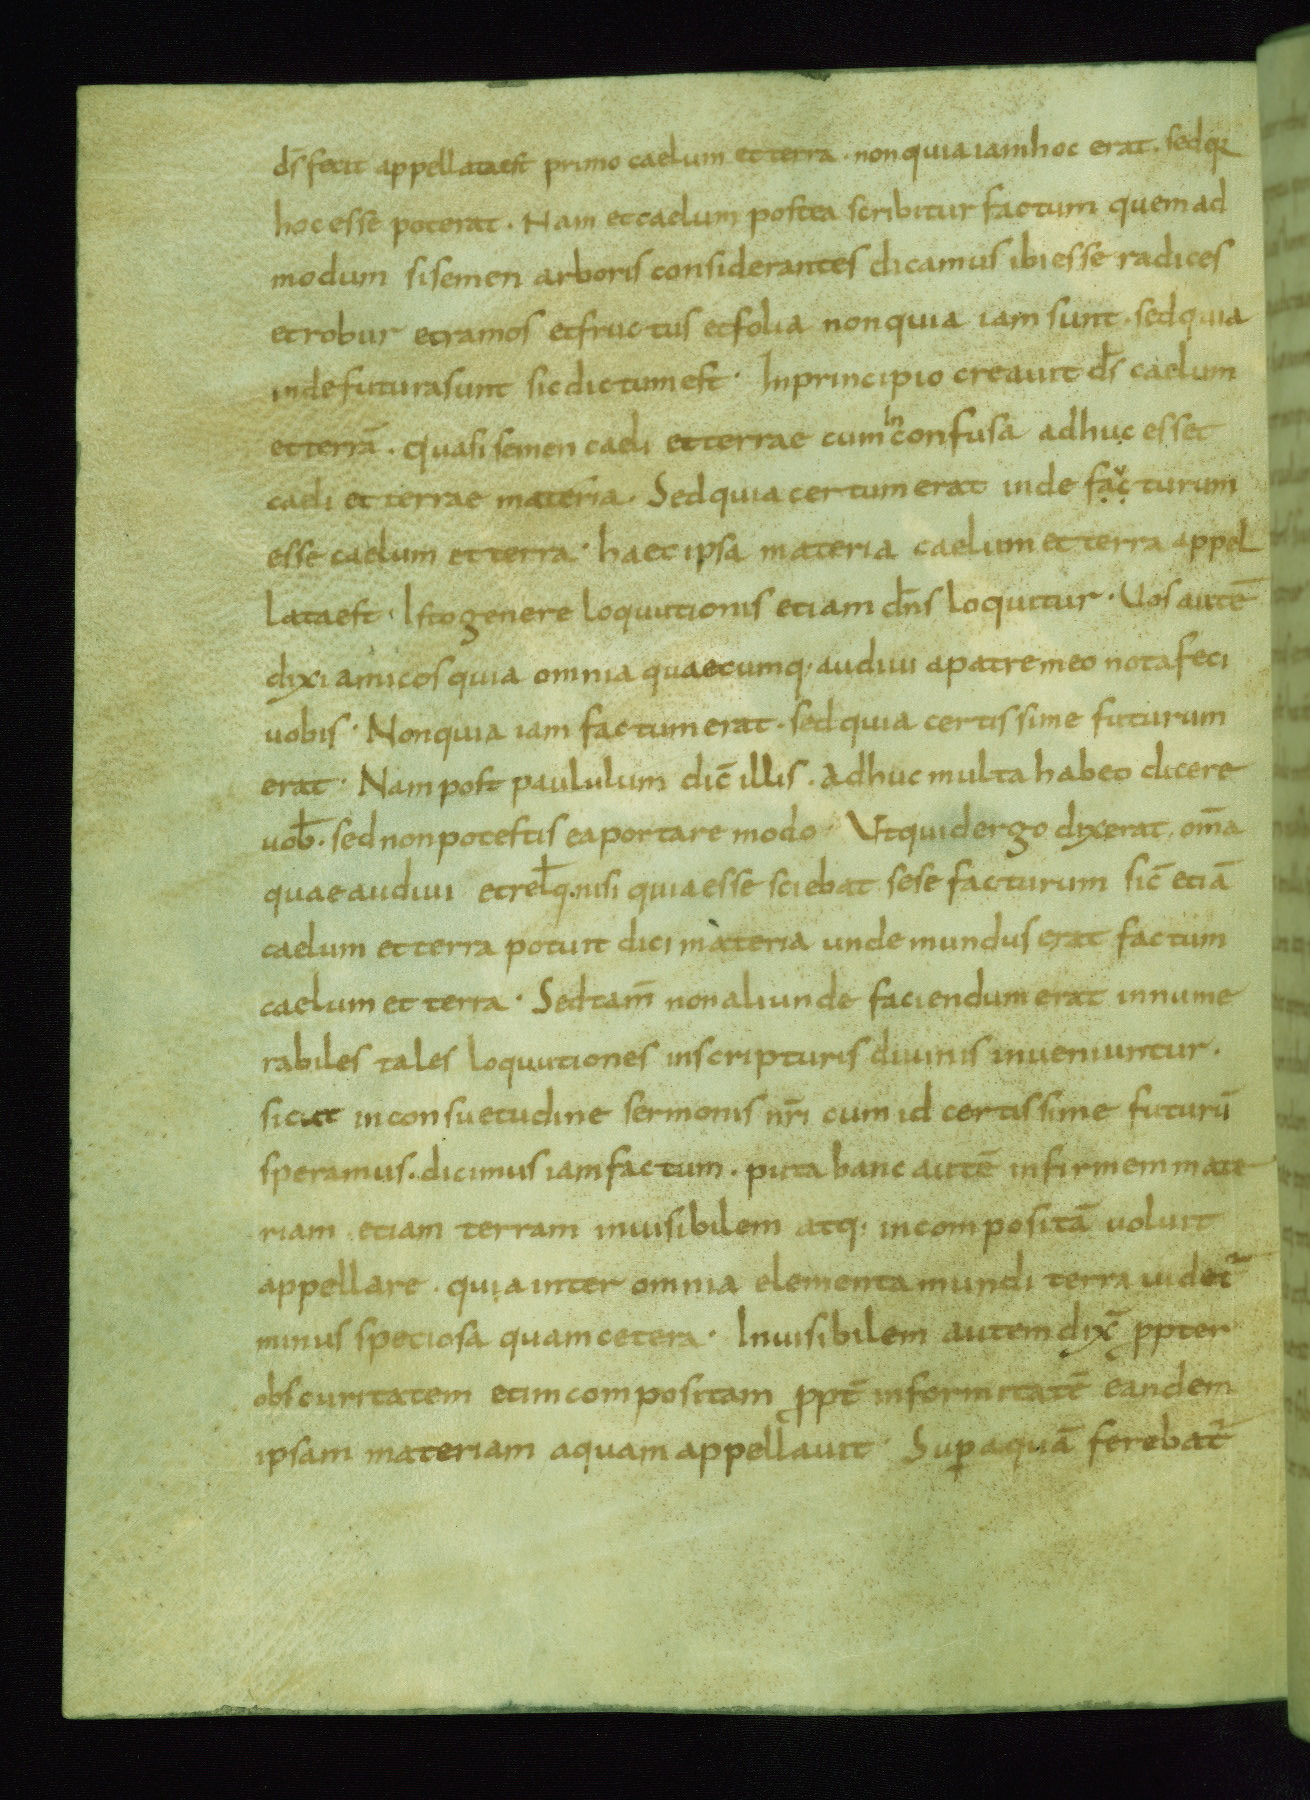 ds̄ fecit appellata est primo caelum et terra · non quia iam hoc erat · sed qꝛ
hoc esse poterat · Nam et caelum postea scribitur factum quem ad
modum si semen arboris considerantes dicamus ibi esse radices
et robur et ramos et fructus et folia non quia iam sunt · sed quia
inde futura sunt sic dictum est · In principio creauit ds̄ caelum
et terrā · quasi semen caeli et terrae cum in confusa adhuc esset
caeli et terrae materia · Sed quia certum erat inde facturum
esse caelum et terra · haec ipsa materia caelum et terra appel
lata est · Isto genere loquutionis etiam dn̄s loquitur · Uos autē
dixi amicos quia omnia quaecumq· audiui a patre meo nota feci
uobis · Non quia iam factum erat · sed quia certissime futurum
erat · Nam post paululum dic̄ illis · Adhuc multa habeo dicere
uob̄ · sed non potestis ea portare modo · Ut quid ergo dixerat om̄a
quae audiui et relq̄ · nisi quia esse sciebat sese facturum sic̄ etiā
caelum et terra potuit dici materia unde mundus erat factum
caelum et terra · Sed tam̄ non aliunde faciendum erat innume
rabiles tales loquutiones in scripturis diuinis inueniuntur ·
sicut in consuetudine sermonis nr̄i cum id certissime futurū
speramus · dicimus iam factum · puta hanc autē infirmem mate
riam etiam terram inuisibilem atq· incompositā uoluit
appellare · quia inter omnia elementa mundi terra uidet̃
minus speciosa quam cetera · Inuisibilem autem dix̄ ꝓpter
obscuritatem et incompositam ꝓpt̄ informitatē eandem
ipsam materiam aquam appellauit · Suꝑ aquā ferebat̃